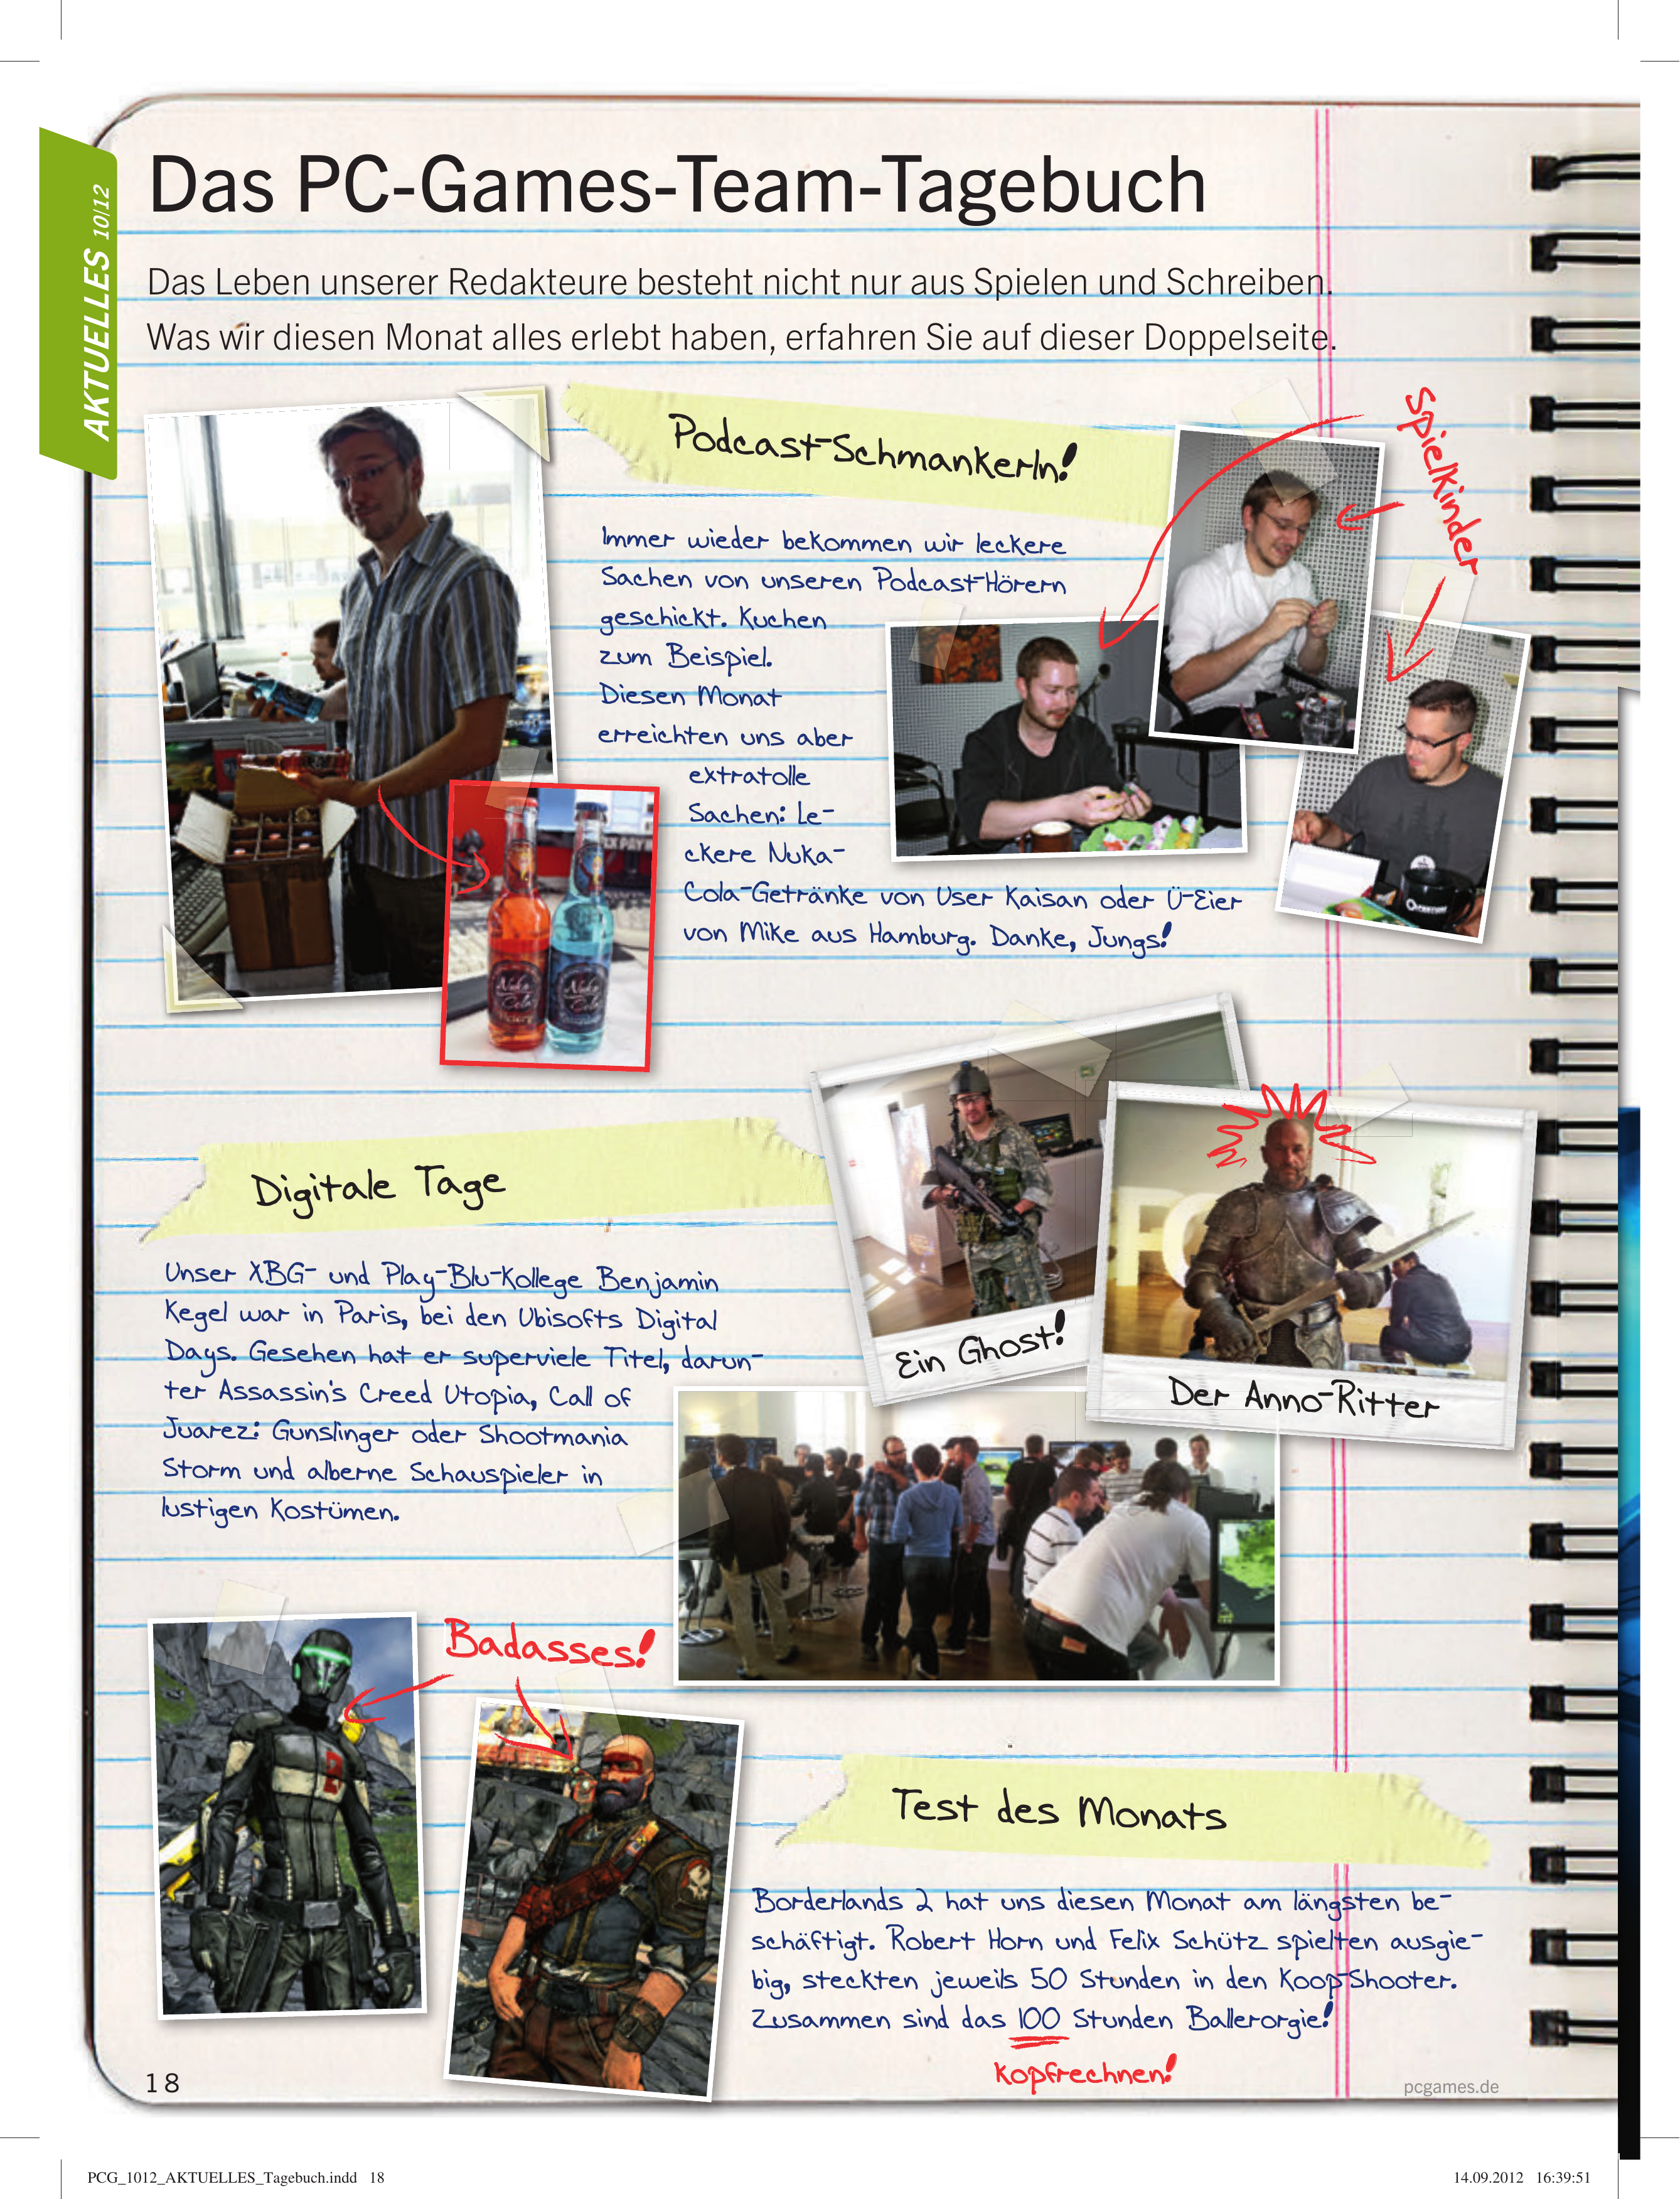 AKTUELLES 10|12
Das PC-Games-Team-Tagebuch
Das Leben unserer Redakteure besteht nicht nur aus Spielen und Schreiben.
Was wir diesen Monat alles erlebt haben, erfahren Sie auf dieser Doppelseite.
Podcast-Schmankerln!
Spielkinder
Immer wieder bekommen wir leckere
Sachen von unseren Podcast-Hörern
geschickt. Kuchen
zum Beispiel.
Diesen Monat
erreichten uns aber
extratolle
Sachen: Le-
ckere Nuka-
Cola-Getränke von User Kaisan oder Ü-Eier
von Mike aus Hamburg. Danke, Jungs!
Nuka Cola
Nuka Cola
Digitale Tage
Unser XBG- und Play-Blu-Kollege Benjamin
Kegel war in Paris, bei den Ubisofts Digital
Days. Gesehen hat er superviele Titel, darun-
ter Assassin's Creed Utopia, Call of
Juarez: Gunslinger oder Shootmania
Storm und alberne Schauspieler in
lustigen Kostümen.
Ein Ghost!
Der Anno-Ritter
Badasses!
Test des Monats
Borderlands 2 hat uns diesen Monat am längsten be-
schäftigt. Robert Horn und Felix Schütz spielten ausgie-
big, steckten jeweils 50 Stunden in den Koop-Shooter.
Zusammen sind das 100 Stunden Ballerorgie!
Kopfrechnen!
18
pcgames.de
PCG_1012_AKTUELLES_Tagebuch.indd 18
14.09.2012 16:39:51